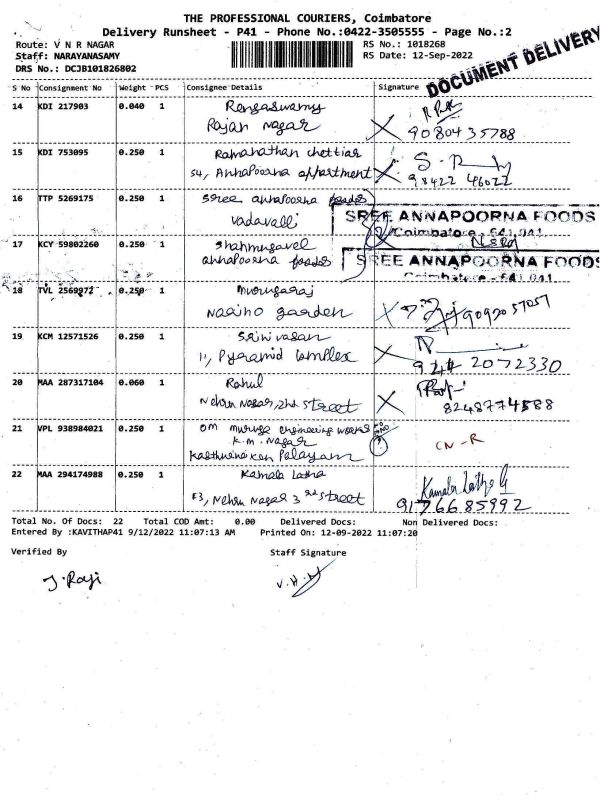 THE PROFESSIONAL COURIERS, Coimbatore
Delivery Runsheet - P41 - Phone No.:0422-3505555 - Page No.:2
Route: V N R NAGAR RS No.: 1018268
Staff: NARAYANASAMY RS Date: 12-Sep-2022
DRS No.: DCJB101826802
DOCUMENT DELIVERY
S No Consignment No Weight PCS Consignee Details Signature
14 KDI 217903 0.040 1 Rengaswamy
Rajan Nagar 9080435788
15 KDI 753095 0.250 1 Ramanathan chettiar
54, Annapoorna appartment 98422 46022
16 TTP 5269175 0.250 1 Sree annapoorna foods
vadavalli SREE ANNAPOORNA FOODS
Coimbatore - 641 041
17 KCY 59802260 0.250 1 Shanmugavel
annapoorna foods SREE ANNAPOORNA FOODS
Coimbatore - 641 041
18 TVL 2569972 0.250 1 murugaraj
Narino garden 9092057057
19 KCM 12571526 0.250 1 Srinivasan
11, Pyramid Complex 944 2072330
20 MAA 287317104 0.060 1 Rahul
Nehru Nagar, 2nd Street 8248774588
21 VPL 938984021 0.250 1 om muruga engineering works
K.m. Nagar CN-R
Kasthurinaicken Palayam
22 MAA 294174988 0.250 1 Kamala Latha Kamala Latha G
F3, Nehru Nagar 3rd Street 9176685992
Total No. Of Docs: 22 Total COD Amt: 0.00 Delivered Docs: Non Delivered Docs:
Entered By :KAVITHAP41 9/12/2022 11:07:13 AM Printed On: 12-09-2022 11:07:20
Verified By Staff Signature
J. Raji V.H.